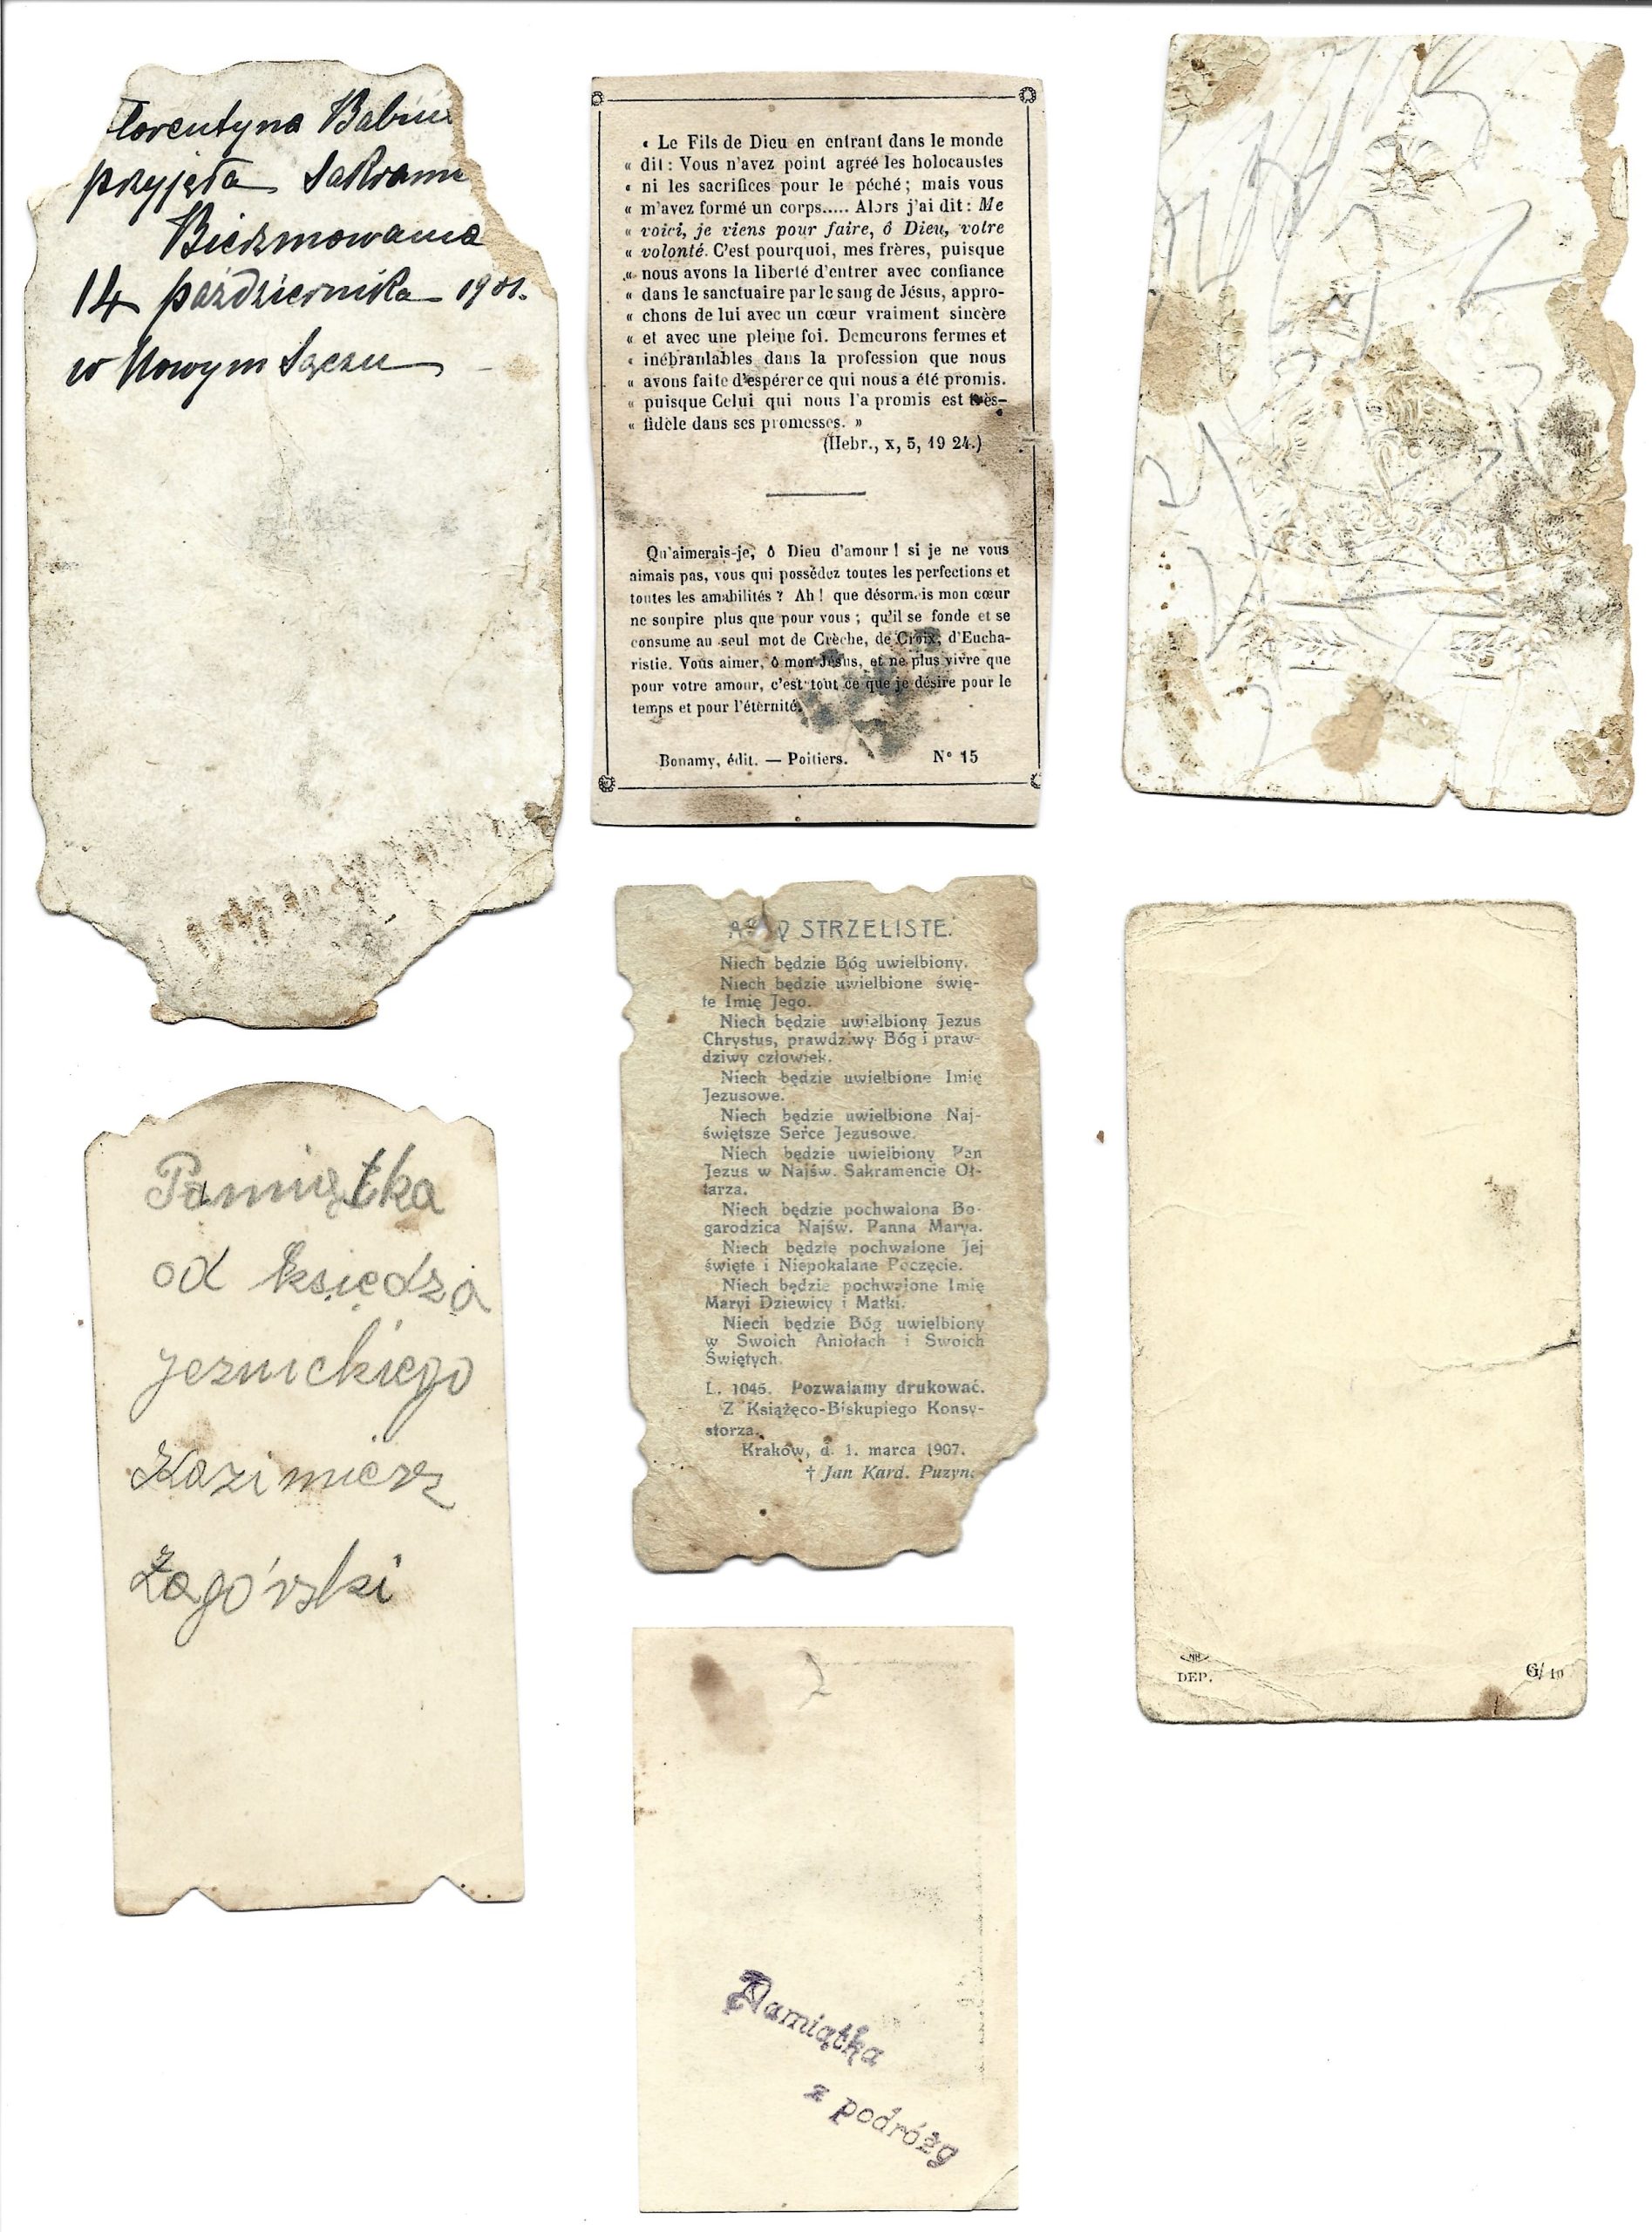 Florentyna
przyjęła
Bierzmowania
14 października 1901.
w Nowym Sączu
« Le Fils de Dieu en entrant dans le monde
« dit : Vous n'avez point agréé les holocaustes
« ni les sacrifices pour le péché ; mais vous
« m'avez formé un corps..... Alors j'ai dit : Me
« voici, je viens pour faire, ô Dieu, votre
« volonté. C'est pourquoi, mes frères, puisque
« nous avons la liberté d'entrer avec confiance
« dans le sanctuaire par le sang de Jésus, appro-
« chons de lui avec un cœur vraiment sincère
« et avec une pleine foi. Demeurons fermes et
« inébranlables dans la profession que nous
« avons faite d'espérer ce qui nous a été promis.
« puisque Celui qui nous l'a promis est très-
« fidèle dans ses promesses. »
(Hebr., x, 5, 19 24.)
Qu'aimerais-je, ô Dieu d'amour ! si je ne vous
aimais pas, vous qui possédez toutes les perfections et
toutes les amabilités ? Ah ! que désormais mon cœur
ne soupire plus que pour vous ; qu'il se fonde et se
consume au seul mot de Crèche, de Croix, d'Eucha-
ristie. Vous aimer, ô mon Jésus, et ne plus vivre que
pour votre amour, c'est tout ce que je désire pour le
temps et pour l'éternité.
Bonamy, édit. — Poitiers. N° 15
STRZELISTE.
Niech będzie Bóg uwielbiony.
Niech będzie uwielbione świę-
te Imię Jego.
Niech będzie uwielbiony Jezus
Chrystus, prawdziwy Bóg i praw-
dziwy człowiek.
Niech będzie uwielbione Imię
Jezusowe.
Niech będzie uwielbione Naj-
świętsze Serce Jezusowe.
Niech będzie uwielbiony Pan
Jezus w Najśw. Sakramencie Oł-
tarza.
Niech będzie pochwalona Bo-
garodzica Najśw. Panna Marya.
Niech będzie pochwalone Jej
święte i Niepokalane Poczęcie.
Niech będzie pochwalone Imię
Maryi Dziewicy i Matki.
Niech będzie Bóg uwielbiony
w Swoich Aniołach i Swoich
Świętych.
L. 1045. Pozwalamy drukować.
Z Książęco-Biskupiego Konsy-
storza.
Kraków, d. 1. marca 1907.
† Jan Kard. Puzyna
Pamiątka
od księdza
Jeznickiego
Kazimierz
Zagórski
NH
DEP.
G/10
2
Pamiątka
z podróży